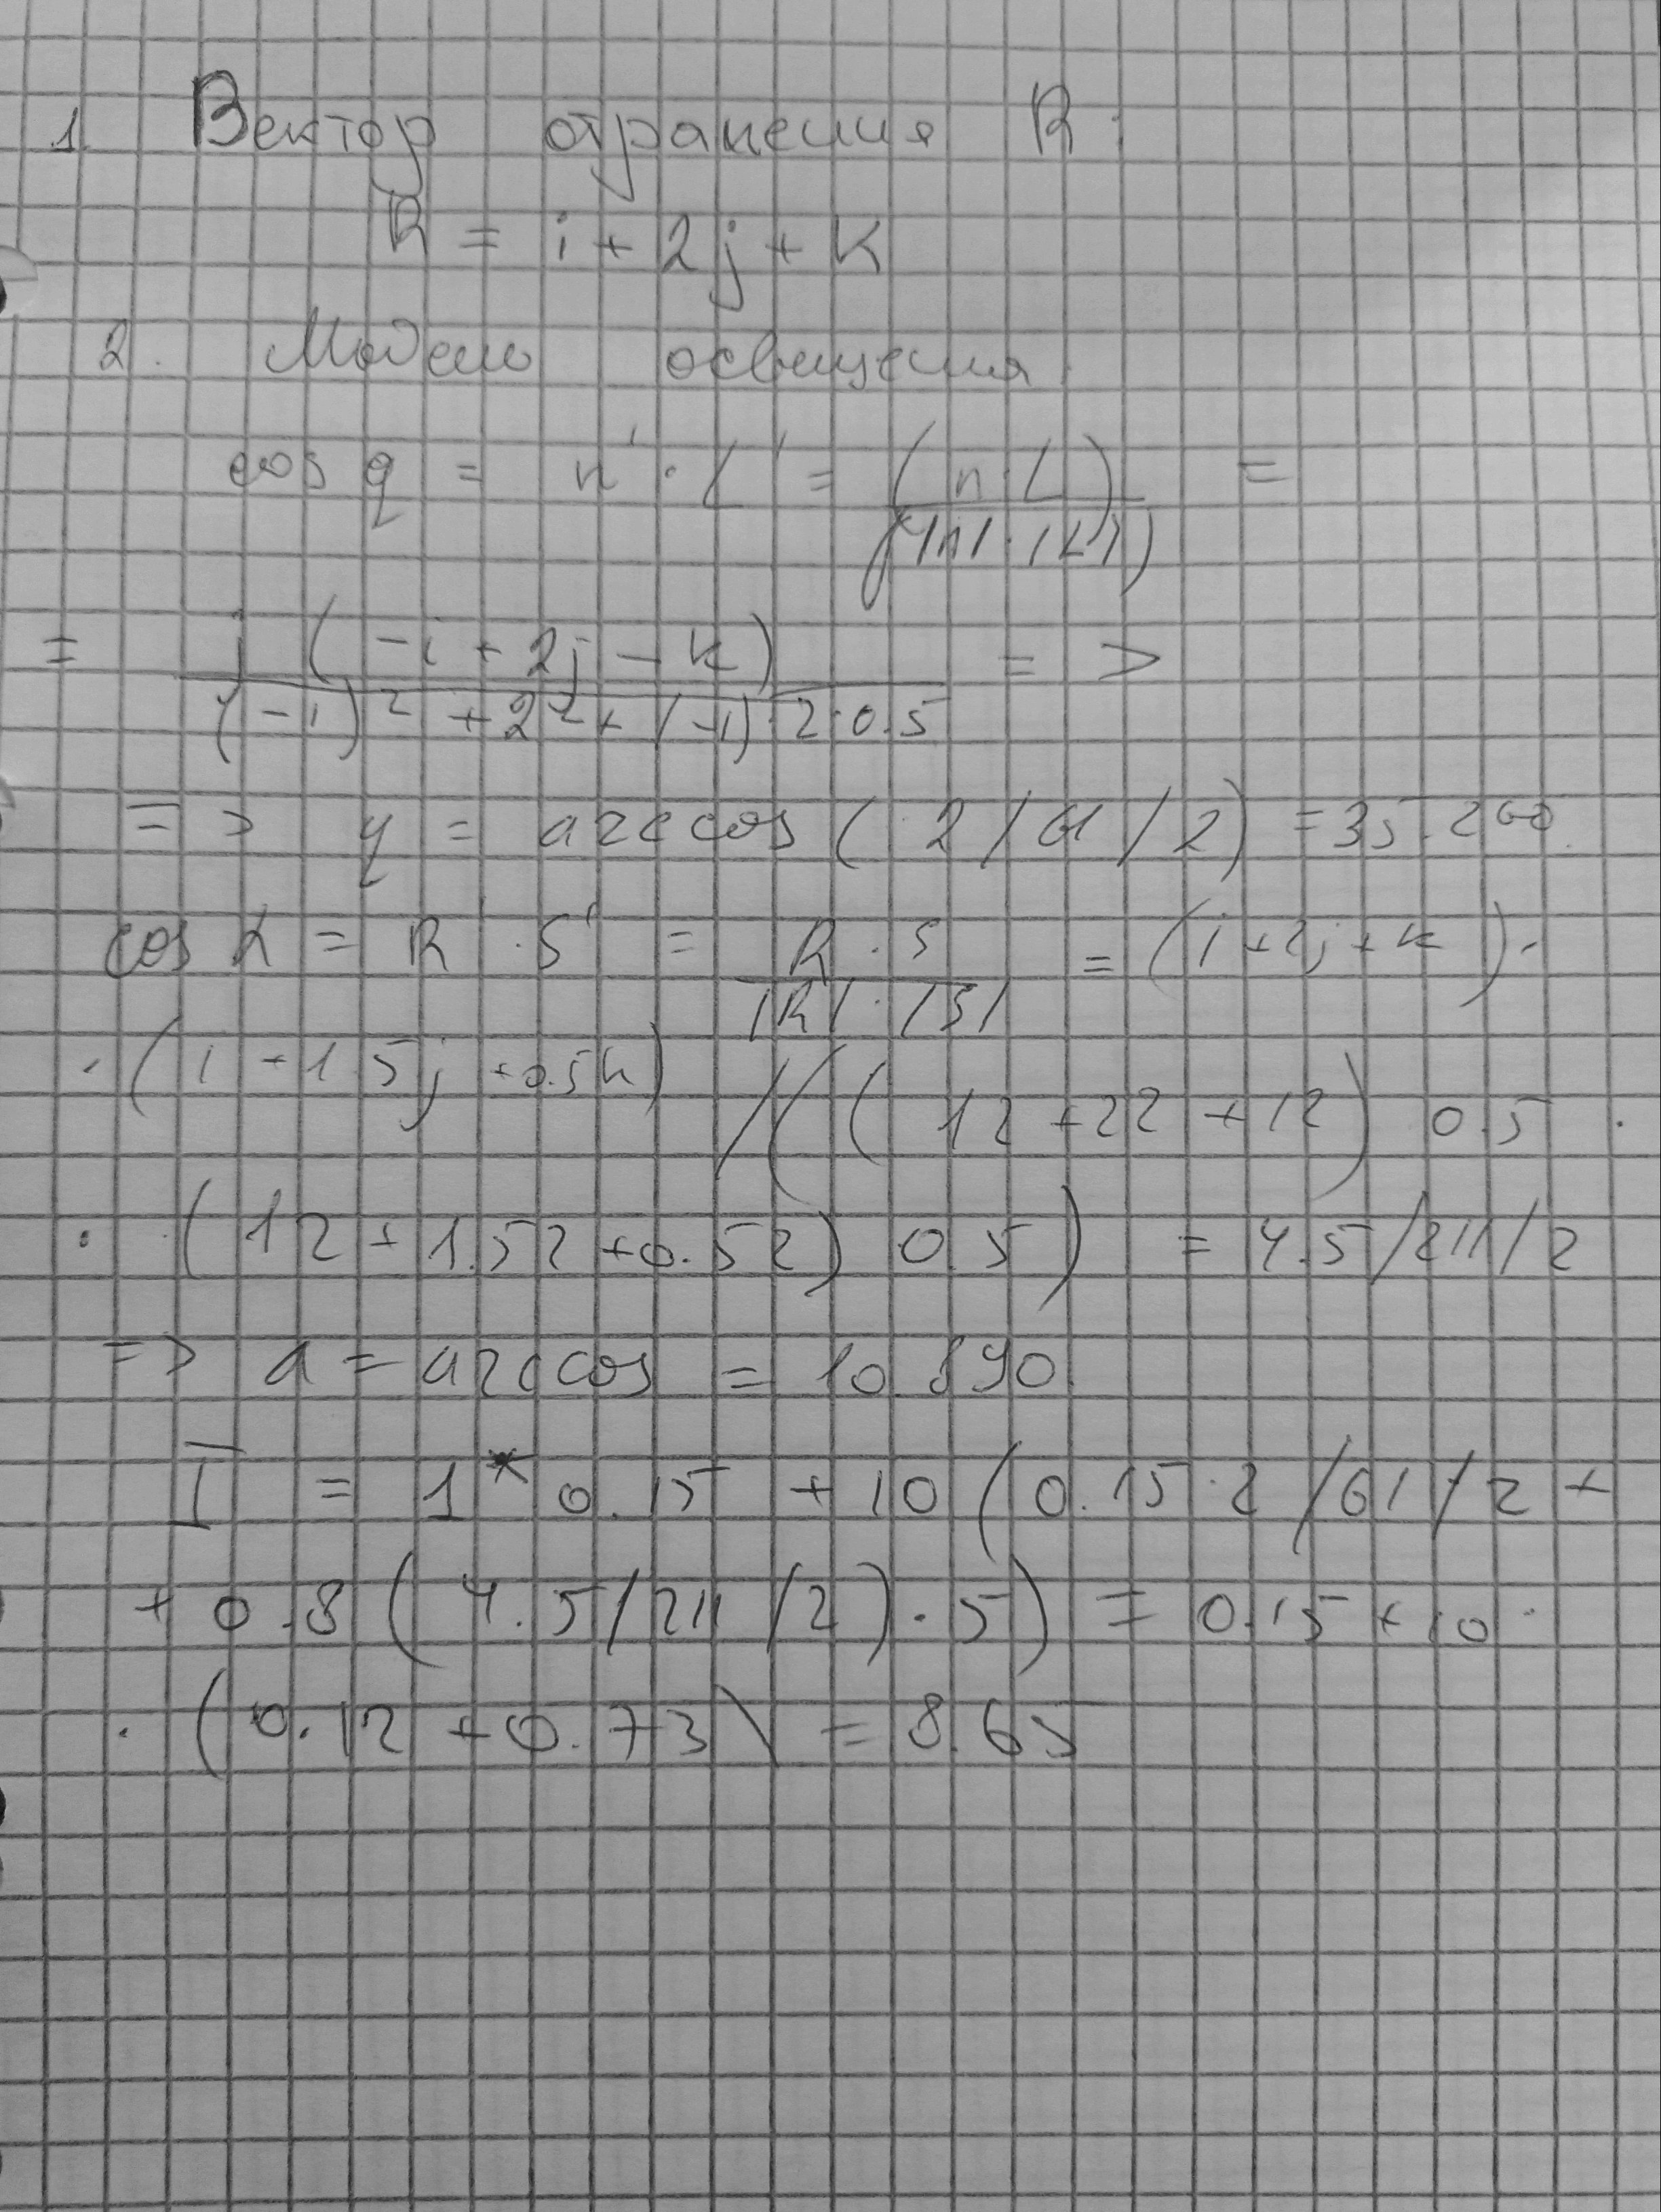 1. Вектор отражения R:
R = i + 2j + k
2. Модель освещения
cos q = n' · L' = (n·L) =
(|n|·|L|)
= j (-i + 2j - k) = >
(-1)² + 2² + (-1)·2·0.5
=> q = arccos (2/61/2) = 35.260
cos α = R' · S' = R · S = (i + 2j + k) ·
|R| · |S|
· (i + 1.5j + 0.5k) / (( 12 + 22 + 12) 0.5 ·
· (12 + 1.52 + 0.52) 0.5) = 4.5/211/2
=> a = arccos = 10.890
I = 1 * 0.15 + 10 (0.15·2/61/2 +
+ 0.8 (4.5/211/2) · 5) = 0.15 + 10 ·
· (0.12 + 0.73) = 8.65